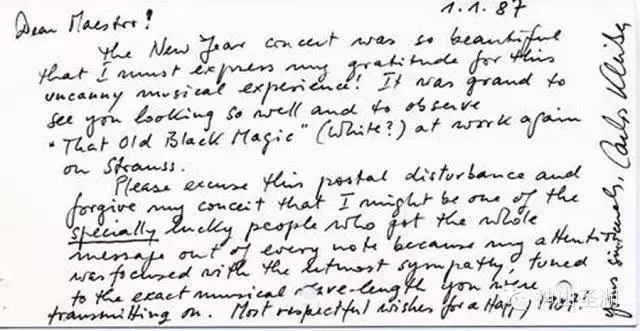 1.1.87
Dear Maestro!
The New Year concert was so beautiful
that I must express my gratitude for this
uncanny musical experience! It was grand to
see you looking so well and to observe
"That Old Black Magic" (White?) at work again
on Strauss.
Please excuse this postal disturbance and
forgive my conceit that I might be one of the
specially lucky people who got the whole
message out of every note because my attention
was focused with the utmost sympathy, tuned
to the exact musical wave-length you were
transmitting on. Most respectful wishes for a Happy 1987.
yours sincerely, Carlos Kleiber